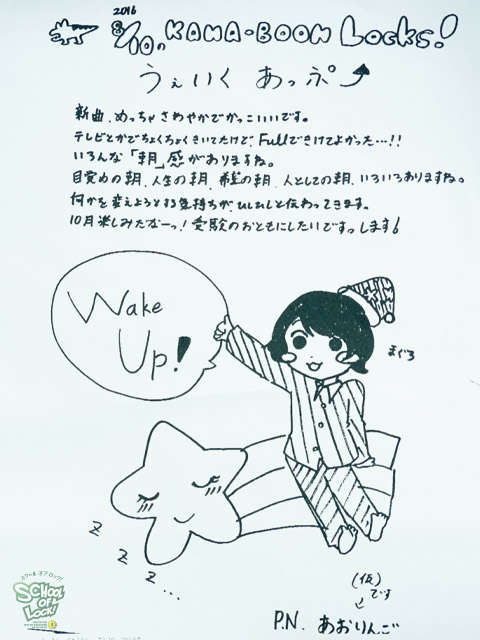 2016
8/10の KANA-BOON Locks!
うぇいく あっぷ
新曲、めっちゃさわやかでかっこいいです。
テレビとかでちょくちょくきいてたけど、Fullできけてよかった…!!
いろんな「朝」感がありますね。
目覚めの朝、人生の朝、希望の朝、人としての朝、いろいろありますね。
何かを変えようとする気持ちが、ひしひしと伝わってきます。
10月楽しみだなーっ!受験のおともにしたいですっします!
Wake
Up!
まぐろ
z
z
z...
(仮)
です
P.N. あおりんご
スクール オブ ロック!
SCHOOL
OF
LOCK!